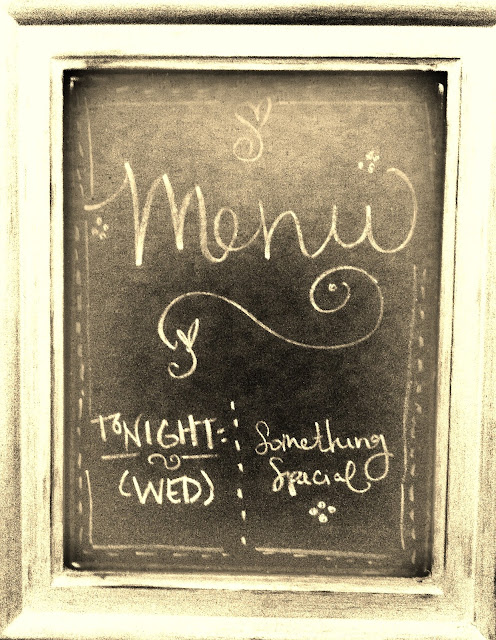 Menu
TONIGHT:
(WED)
Something
Special